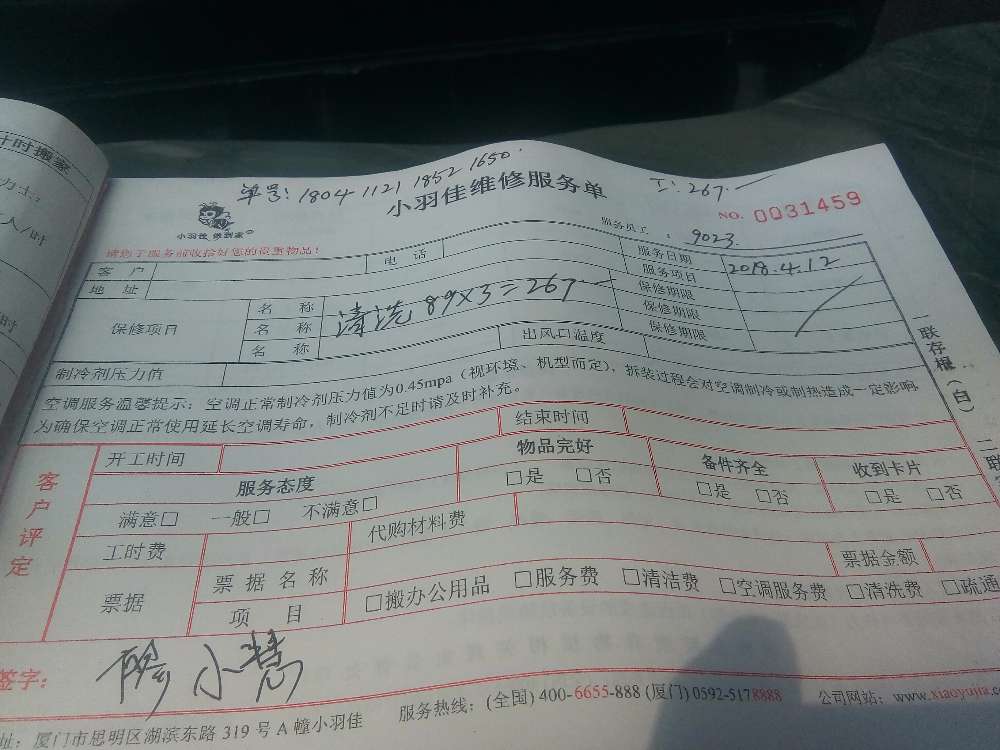 计时搬家
单号：1804 1121 1852 1650.
工：267.一
小羽佳维修服务单
NO. 0031459
小羽佳 做到家
服务员工：9023.
请您于服务前收拾好您的贵重物品！
客 户
电 话
服务日期
2018.4.12
地 址
服务项目
保修项目
名 称
清洗 89×3=267一
保修期限
名 称
保修期限
名 称
保修期限
制冷剂压力值
出风口温度
空调服务温馨提示：空调正常制冷剂压力值为0.45mpa（视环境、机型而定），拆装过程会对空调制冷或制热造成一定影响，
为确保空调正常使用延长空调寿命，制冷剂不足时请及时补充。
一联存根（白）
客户评定
开工时间
结束时间
服务态度
物品完好
备件齐全
收到卡片
满意□ 一般□ 不满意□
□是 □否
□是 □否
□是 □否
工时费
代购材料费
票据金额
票据
票 据 名 称
项 目
□搬办公用品 □服务费 □清洁费 □空调服务费 □清洗费 □疏通
签字：
小慧
址：厦门市思明区湖滨东路 319 号 A 幢小羽佳
服务热线：(全国) 400-6655-888 (厦门) 0592-5178888
公司网站：www.xiaoyujia.co